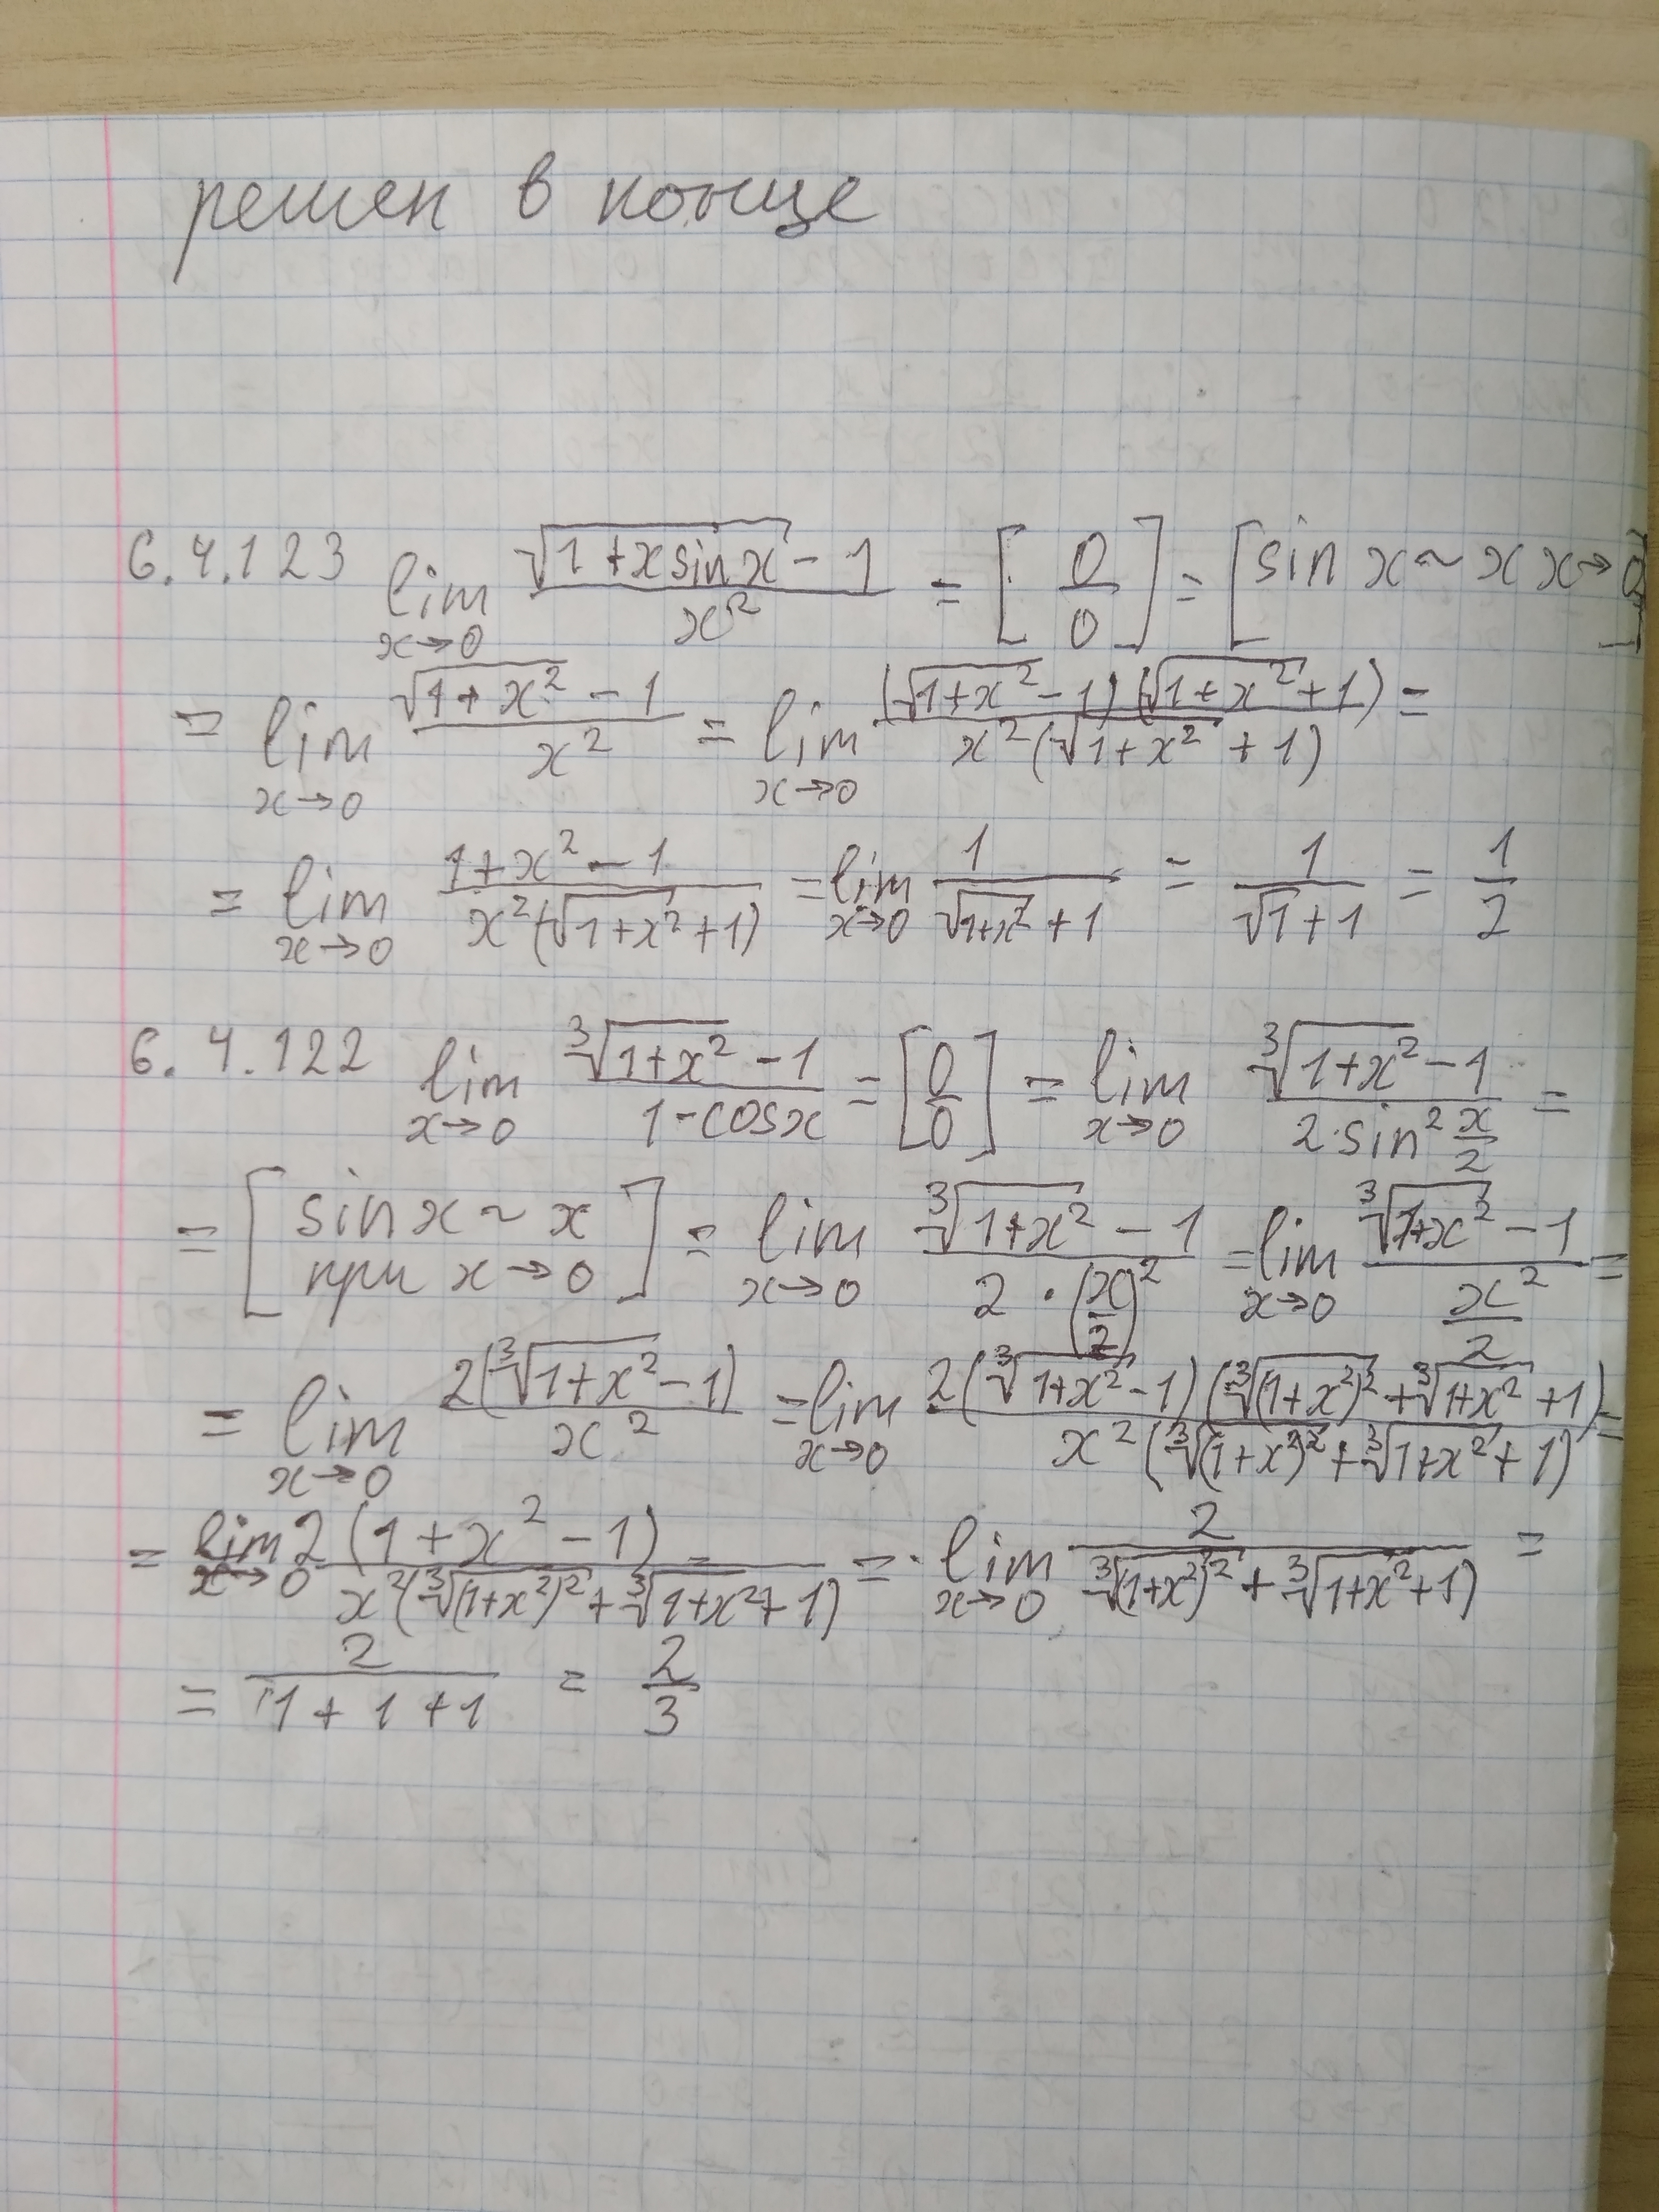 решен в конце
6.4.123 lim_{x→0} \frac{\sqrt{1+x sin x} - 1}{x^2} = [\frac{0}{0}] = [sin x ~ x x→0]
= lim_{x→0} \frac{\sqrt{1+x^2} - 1}{x^2} = lim_{x→0} \frac{(\sqrt{1+x^2} - 1)(\sqrt{1+x^2} + 1)}{x^2(\sqrt{1+x^2} + 1)} =
= lim_{x→0} \frac{1+x^2 - 1}{x^2(\sqrt{1+x^2} + 1)} = lim_{x→0} \frac{1}{\sqrt{1+x^2} + 1} = \frac{1}{\sqrt{1} + 1} = \frac{1}{2}
6.4.122 lim_{x→0} \frac{\sqrt[3]{1+x^2} - 1}{1 - cos x} = [\frac{0}{0}] = lim_{x→0} \frac{\sqrt[3]{1+x^2} - 1}{2 \cdot sin^2 \frac{x}{2}} =
= [sin x ~ x при x→0] = lim_{x→0} \frac{\sqrt[3]{1+x^2} - 1}{2 \cdot (\frac{x}{2})^2} = lim_{x→0} \frac{\sqrt[3]{1+x^2} - 1}{\frac{x^2}{2}} =
= lim_{x→0} \frac{2(\sqrt[3]{1+x^2} - 1)}{x^2} = lim_{x→0} \frac{2(\sqrt[3]{1+x^2} - 1)(\sqrt[3]{(1+x^2)^2} + \sqrt[3]{1+x^2} + 1)}{x^2(\sqrt[3]{(1+x^2)^2} + \sqrt[3]{1+x^2} + 1)} =
= lim_{x→0} \frac{2(1+x^2 - 1)}{x^2(\sqrt[3]{(1+x^2)^2} + \sqrt[3]{1+x^2} + 1)} = lim_{x→0} \frac{2}{\sqrt[3]{(1+x^2)^2} + \sqrt[3]{1+x^2} + 1)} =
= \frac{2}{1 + 1 + 1} = \frac{2}{3}